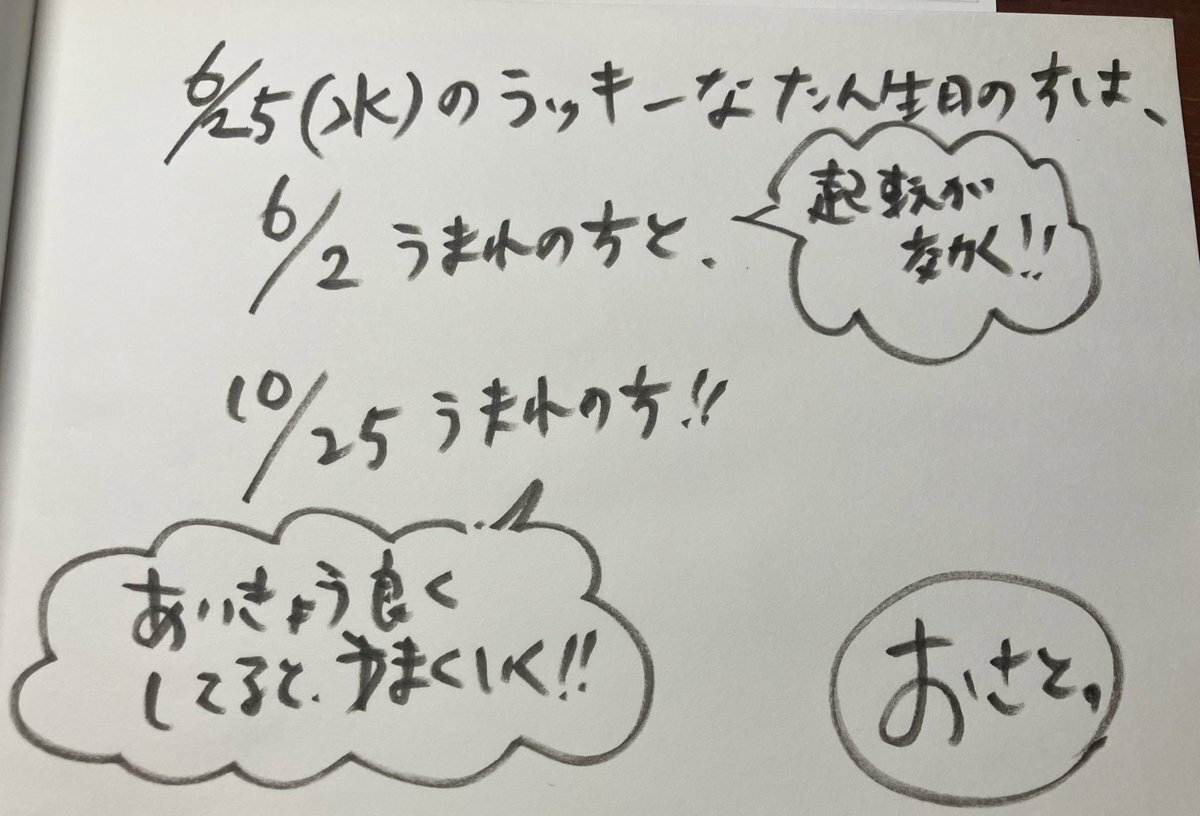 6/25(水)のラッキーなたん生日の方は、
6/2 うまれの方と、
起転が
きかく!!
10/25 うまれの方!!
あいきょう良く
してると、うまくいく!!
おさと。